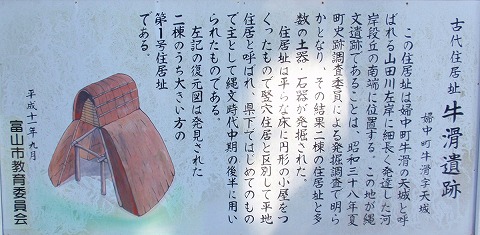 古代住居址 牛滑遺跡
婦中町牛滑字天城
この住居址は婦中町牛滑の天城と呼
ばれる山田川左岸に細長く発達した河
岸段丘の南端に位置する。この地が縄
文遺跡であることは、昭和三十八年夏
町史跡調査委員による発掘調査で明ら
かとなり、その結果二棟の住居址と多
数の土器・石器が発掘された。
住居址は平らな床に円形の小屋をつ
くったもので竪穴住居と区別して平地
住居と呼ばれ、県下ではじめてのもの
で主として縄文時代中期の後半に用い
られたものである。
左記の復元図は発見された
二棟のうち大きい方の
第1号住居址
である。
平成十一年九月
富山市教育委員会